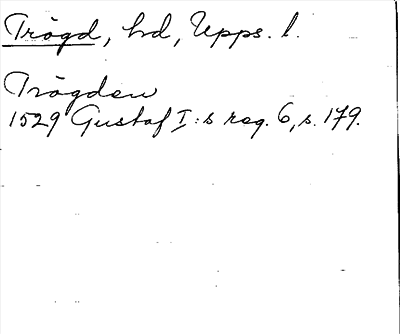 Trögd, hd, Upps. l.
Trögden
1529 Gustaf I:s reg. 6, s. 179.